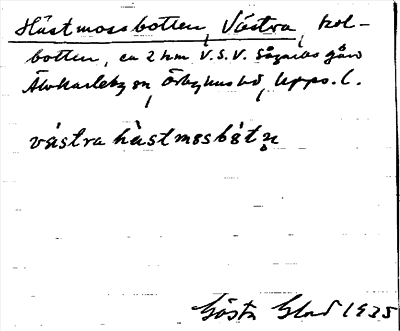 Hästmossbotten, Västra, kol-
botten, ca 2 km V.S.V. Sågarbo gård
Älvkarleby sn Örbyhus hd, Upps. l.
västra hästmosbòtn̥
Gösta Glad 1925